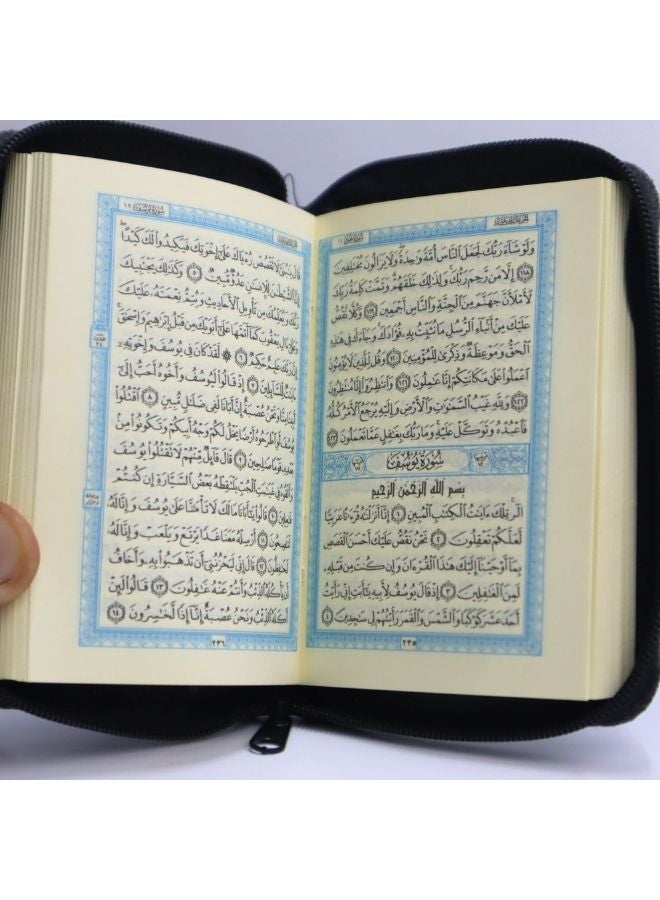 سُورَةُ هُودٍ ١١
وَلَوْ شَآءَ رَبُّكَ لَجَعَلَ ٱلنَّاسَ أُمَّةً وَٰحِدَةً ۖ وَلَا يَزَالُونَ مُخْتَلِفِينَ
۝١١٨ إِلَّا مَن رَّحِمَ رَبُّكَ ۚ وَلِذَٰلِكَ خَلَقَهُمْ ۗ وَتَمَّتْ كَلِمَةُ رَبِّكَ
لَأَمْلَأَنَّ جَهَنَّمَ مِنَ ٱلْجِنَّةِ وَٱلنَّاسِ أَجْمَعِينَ ۝١١٩ وَكُلًّا نَّقُصُّ
عَلَيْكَ مِنْ أَنۢبَآءِ ٱلرُّسُلِ مَا نُثَبِّتُ بِهِۦ فُؤَادَكَ ۚ وَجَآءَكَ فِى هَٰذِهِ
ٱلْحَقُّ وَمَوْعِظَةٌ وَذِكْرَىٰ لِلْمُؤْمِنِينَ ۝١٢٠ وَقُل لِّلَّذِينَ لَا يُؤْمِنُونَ
ٱعْمَلُوا۟ عَلَىٰ مَكَانَتِكُمْ إِنَّا عَٰمِلُونَ ۝١٢١ وَٱنتَظِرُوٓا۟ إِنَّا مُنتَظِرُونَ
۝١٢٢ وَلِلَّهِ غَيْبُ ٱلسَّمَٰوَٰتِ وَٱلْأَرْضِ وَإِلَيْهِ يُرْجَعُ ٱلْأَمْرُ كُلُّهُۥ
فَٱعْبُدْهُ وَتَوَكَّلْ عَلَيْهِ ۚ وَمَا رَبُّكَ بِغَٰفِلٍ عَمَّا تَعْمَلُونَ ۝١٢٣
سُورَةُ يُوسُفَ
بِسْمِ ٱللَّهِ ٱلرَّحْمَٰنِ ٱلرَّحِيمِ
الٓر ۚ تِلْكَ ءَايَٰتُ ٱلْكِتَٰبِ ٱلْمُبِينِ ۝١ إِنَّآ أَنزَلْنَٰهُ قُرْءَٰنًا عَرَبِيًّا
لَّعَلَّكُمْ تَعْقِلُونَ ۝٢ نَحْنُ نَقُصُّ عَلَيْكَ أَحْسَنَ ٱلْقَصَصِ
بِمَآ أَوْحَيْنَآ إِلَيْكَ هَٰذَا ٱلْقُرْءَانَ وَإِن كُنتَ مِن قَبْلِهِۦ
لَمِنَ ٱلْغَٰفِلِينَ ۝٣ إِذْ قَالَ يُوسُفُ لِأَبِيهِ يَٰٓأَبَتِ إِنِّى رَأَيْتُ
أَحَدَ عَشَرَ كَوْكَبًا وَٱلشَّمْسَ وَٱلْقَمَرَ رَأَيْتُهُمْ لِى سَٰجِدِينَ ۝٤
٢٣٥
سُورَةُ يُوسُفَ ١٢
قَالَ يَٰبُنَىَّ لَا تَقْصُصْ رُءْيَاكَ عَلَىٰٓ إِخْوَتِكَ فَيَكِيدُوا۟ لَكَ كَيْدًا ۖ
إِنَّ ٱلشَّيْطَٰنَ لِلْإِنسَٰنِ عَدُوٌّ مُّبِينٌ ۝٥ وَكَذَٰلِكَ يَجْتَبِيكَ
رَبُّكَ وَيُعَلِّمُكَ مِن تَأْوِيلِ ٱلْأَحَادِيثِ وَيُتِمُّ نِعْمَتَهُۥ عَلَيْكَ
وَعَلَىٰٓ ءَالِ يَعْقُوبَ كَمَآ أَتَمَّهَا عَلَىٰٓ أَبَوَيْكَ مِن قَبْلُ إِبْرَٰهِيمَ وَإِسْحَٰقَ ۚ
إِنَّ رَبَّكَ عَلِيمٌ حَكِيمٌ ۝٦ ۞ لَّقَدْ كَانَ فِى يُوسُفَ وَإِخْوَتِهِۦٓ
ءَايَٰتٌ لِّلسَّآئِلِينَ ۝٧ إِذْ قَالُوا۟ لَيُوسُفُ وَأَخُوهُ أَحَبُّ إِلَىٰٓ
أَبِينَا مِنَّا وَنَحْنُ عُصْبَةٌ إِنَّ أَبَانَا لَفِى ضَلَٰلٍ مُّبِينٍ ۝٨ ٱقْتُلُوا۟
يُوسُفَ أَوِ ٱطْرَحُوهُ أَرْضًا يَخْلُ لَكُمْ وَجْهُ أَبِيكُمْ وَتَكُونُوا۟ مِنۢ
بَعْدِهِۦ قَوْمًا صَٰلِحِينَ ۝٩ قَالَ قَآئِلٌ مِّنْهُمْ لَا تَقْتُلُوا۟ يُوسُفَ
وَأَلْقُوهُ فِى غَيَٰبَتِ ٱلْجُبِّ يَلْتَقِطْهُ بَعْضُ ٱلسَّيَّارَةِ إِن كُنتُمْ
فَٰعِلِينَ ۝١٠ قَالُوا۟ يَٰٓأَبَانَا مَا لَكَ لَا تَأْمَ۫نَّا عَلَىٰ يُوسُفَ وَإِنَّا لَهُۥ
لَنَٰصِحُونَ ۝١١ أَرْسِلْهُ مَعَنَا غَدًا يَرْتَعْ وَيَلْعَبْ وَإِنَّا لَهُۥ
لَحَٰفِظُونَ ۝١٢ قَالَ إِنِّى لَيَحْزُنُنِىٓ أَن تَذْهَبُوا۟ بِهِۦ وَأَخَافُ
أَن يَأْكُلَهُ ٱلذِّئْبُ وَأَنتُمْ عَنْهُ غَٰفِلُونَ ۝١٣ قَالُوا۟ لَئِنْ
أَكَلَهُ ٱلذِّئْبُ وَنَحْنُ عُصْبَةٌ إِنَّآ إِذًا لَّخَٰسِرُونَ ۝١٤
٢٣٦